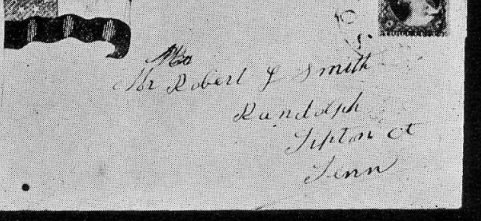 Mr Robert L Smith
Randolph
Tipton Ct
Tenn